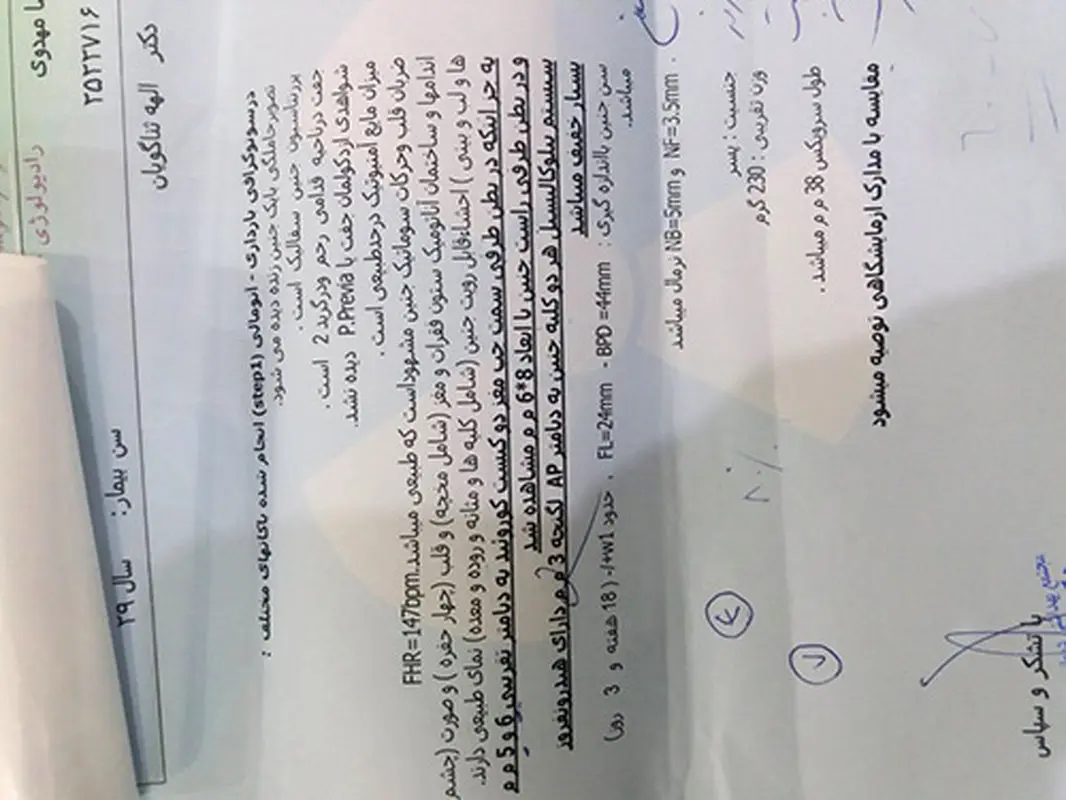 ا مهدوی
رادیولوژی
۲۵۲۲۷۱۶
دکتر الهه ثناگویان
سن بیمار: ۲۹ سال
درسونوگرافی بارداری - انومالی (step1) انجام شده باکاتهای مختلف :
تصویرحاملگی بایک جنین زنده دیده می شود.
پرزانتاسیون جنین سفالیک است .
جفت درناحیه قدامی رحم ودرگرید 2 است .
شواهدی ازدکولمان جفت یا P.Previa دیده نشد.
میزان مایع آمنیوتیک درحدطبیعی است .
ضربان قلب وحرکات سوماتیک جنین مشهوداست که طبیعی میباشد.FHR=147bpm
اندامها و ساختمان آناتومیک ستون فقرات و مغز (شامل مخچه) و قلب (چهار حفره ) و صورت (چشم
ها و لب و بینی ) احشاءقابل رویت جنین (شامل کلیه ها و مثانه و روده و معده) نمای طبیعی دارند.
به جز اینکه در بطن طرفی سمت چپ مغز دو کیست کوروئید به دیامتر تقریبی 6 و 5 م م
و در بطن طرفی راست جنین با ابعاد 8*6 م م مشاهده شد
سیستم پیلوکالیسیل هر دو کلیه جنین به دیامتر AP لگنچه 3 م م دارای هیدرونفروز
بسیار خفیف میباشد
سن جنین بااندازه گیری : FL=24mm - BPD =44mm ، حدود 1w+/-( 18 هفته و 3 روز)
میباشد.
NB=5mm و NF=3.5mm نرمال میباشد .
جنسیت : پسر
وزن تقریبی : 230 گرم
۸۰٪
طول سرویکس 38 م م میباشد .
مقایسه با مدارک ازمایشگاهی توصیه میشود
با تشکر و سپاس